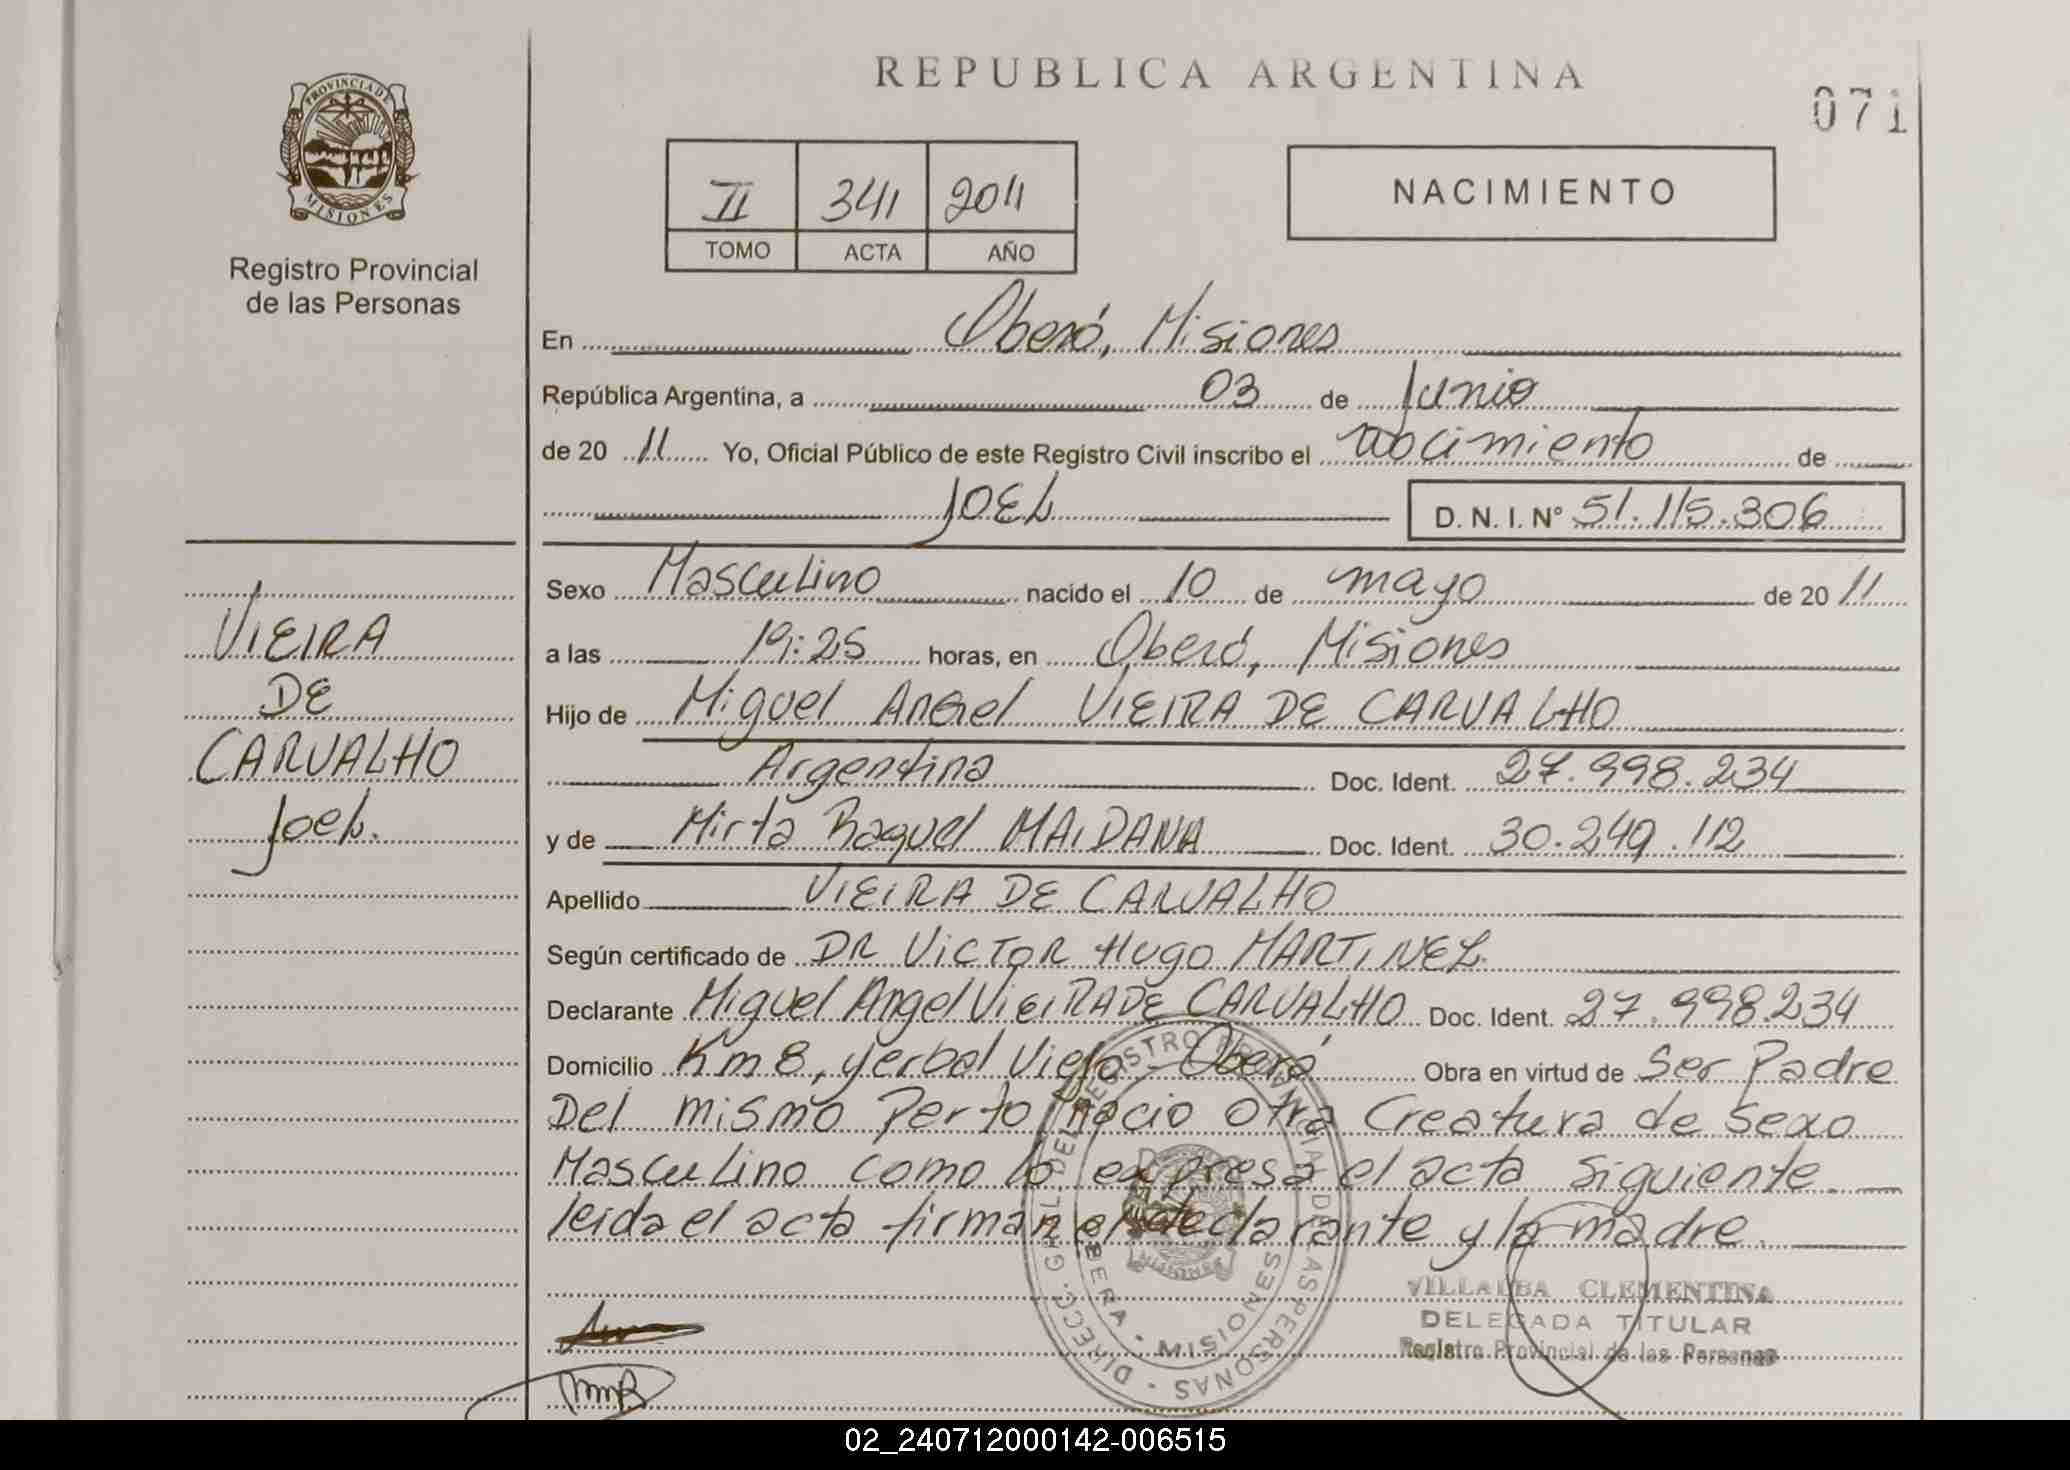 REPUBLICA ARGENTINA
071
PROVINCIA DE
MISIONES
Registro Provincial
de las Personas
II 341 2011
TOMO ACTA AÑO
NACIMIENTO
En Oberá, Misiones
República Argentina, a 03 de Junio
de 20 11 Yo, Oficial Público de este Registro Civil inscribo el nacimiento de
JOEL
D. N. I. N° 51.115.306
VIEIRA
DE
CARVALHO
Joel.
Sexo Masculino nacido el 10 de mayo de 20 11
a las 19:25 horas, en Oberá, Misiones
Hijo de Miguel Angel VIEIRA DE CARVALHO
Argentina Doc. Ident. 27.998.234
y de Mirta Raquel MAIDANA Doc. Ident. 30.249.112
Apellido VIEIRA DE CARVALHO
Según certificado de DR VICTOR HUGO MARTINEZ
Declarante Miguel Angel VIEIRA DE CARVALHO Doc. Ident. 27.998.234
Domicilio Km 8, yerbal Viejo - Oberá Obra en virtud de Ser Padre
Del mismo Parto nacio otra Creatura de sexo
Masculino como lo expresa el acta siguiente.
leida el acta firman el declarante y la madre.
DIRECC. GRAL. DEL REGISTRO PROVINCIAL DE LAS PERSONAS
OBERA - MISIONES
VILLALBA CLEMENTINA
DELEGADA TITULAR
Registro Provincial de las Personas
02_240712000142-006515